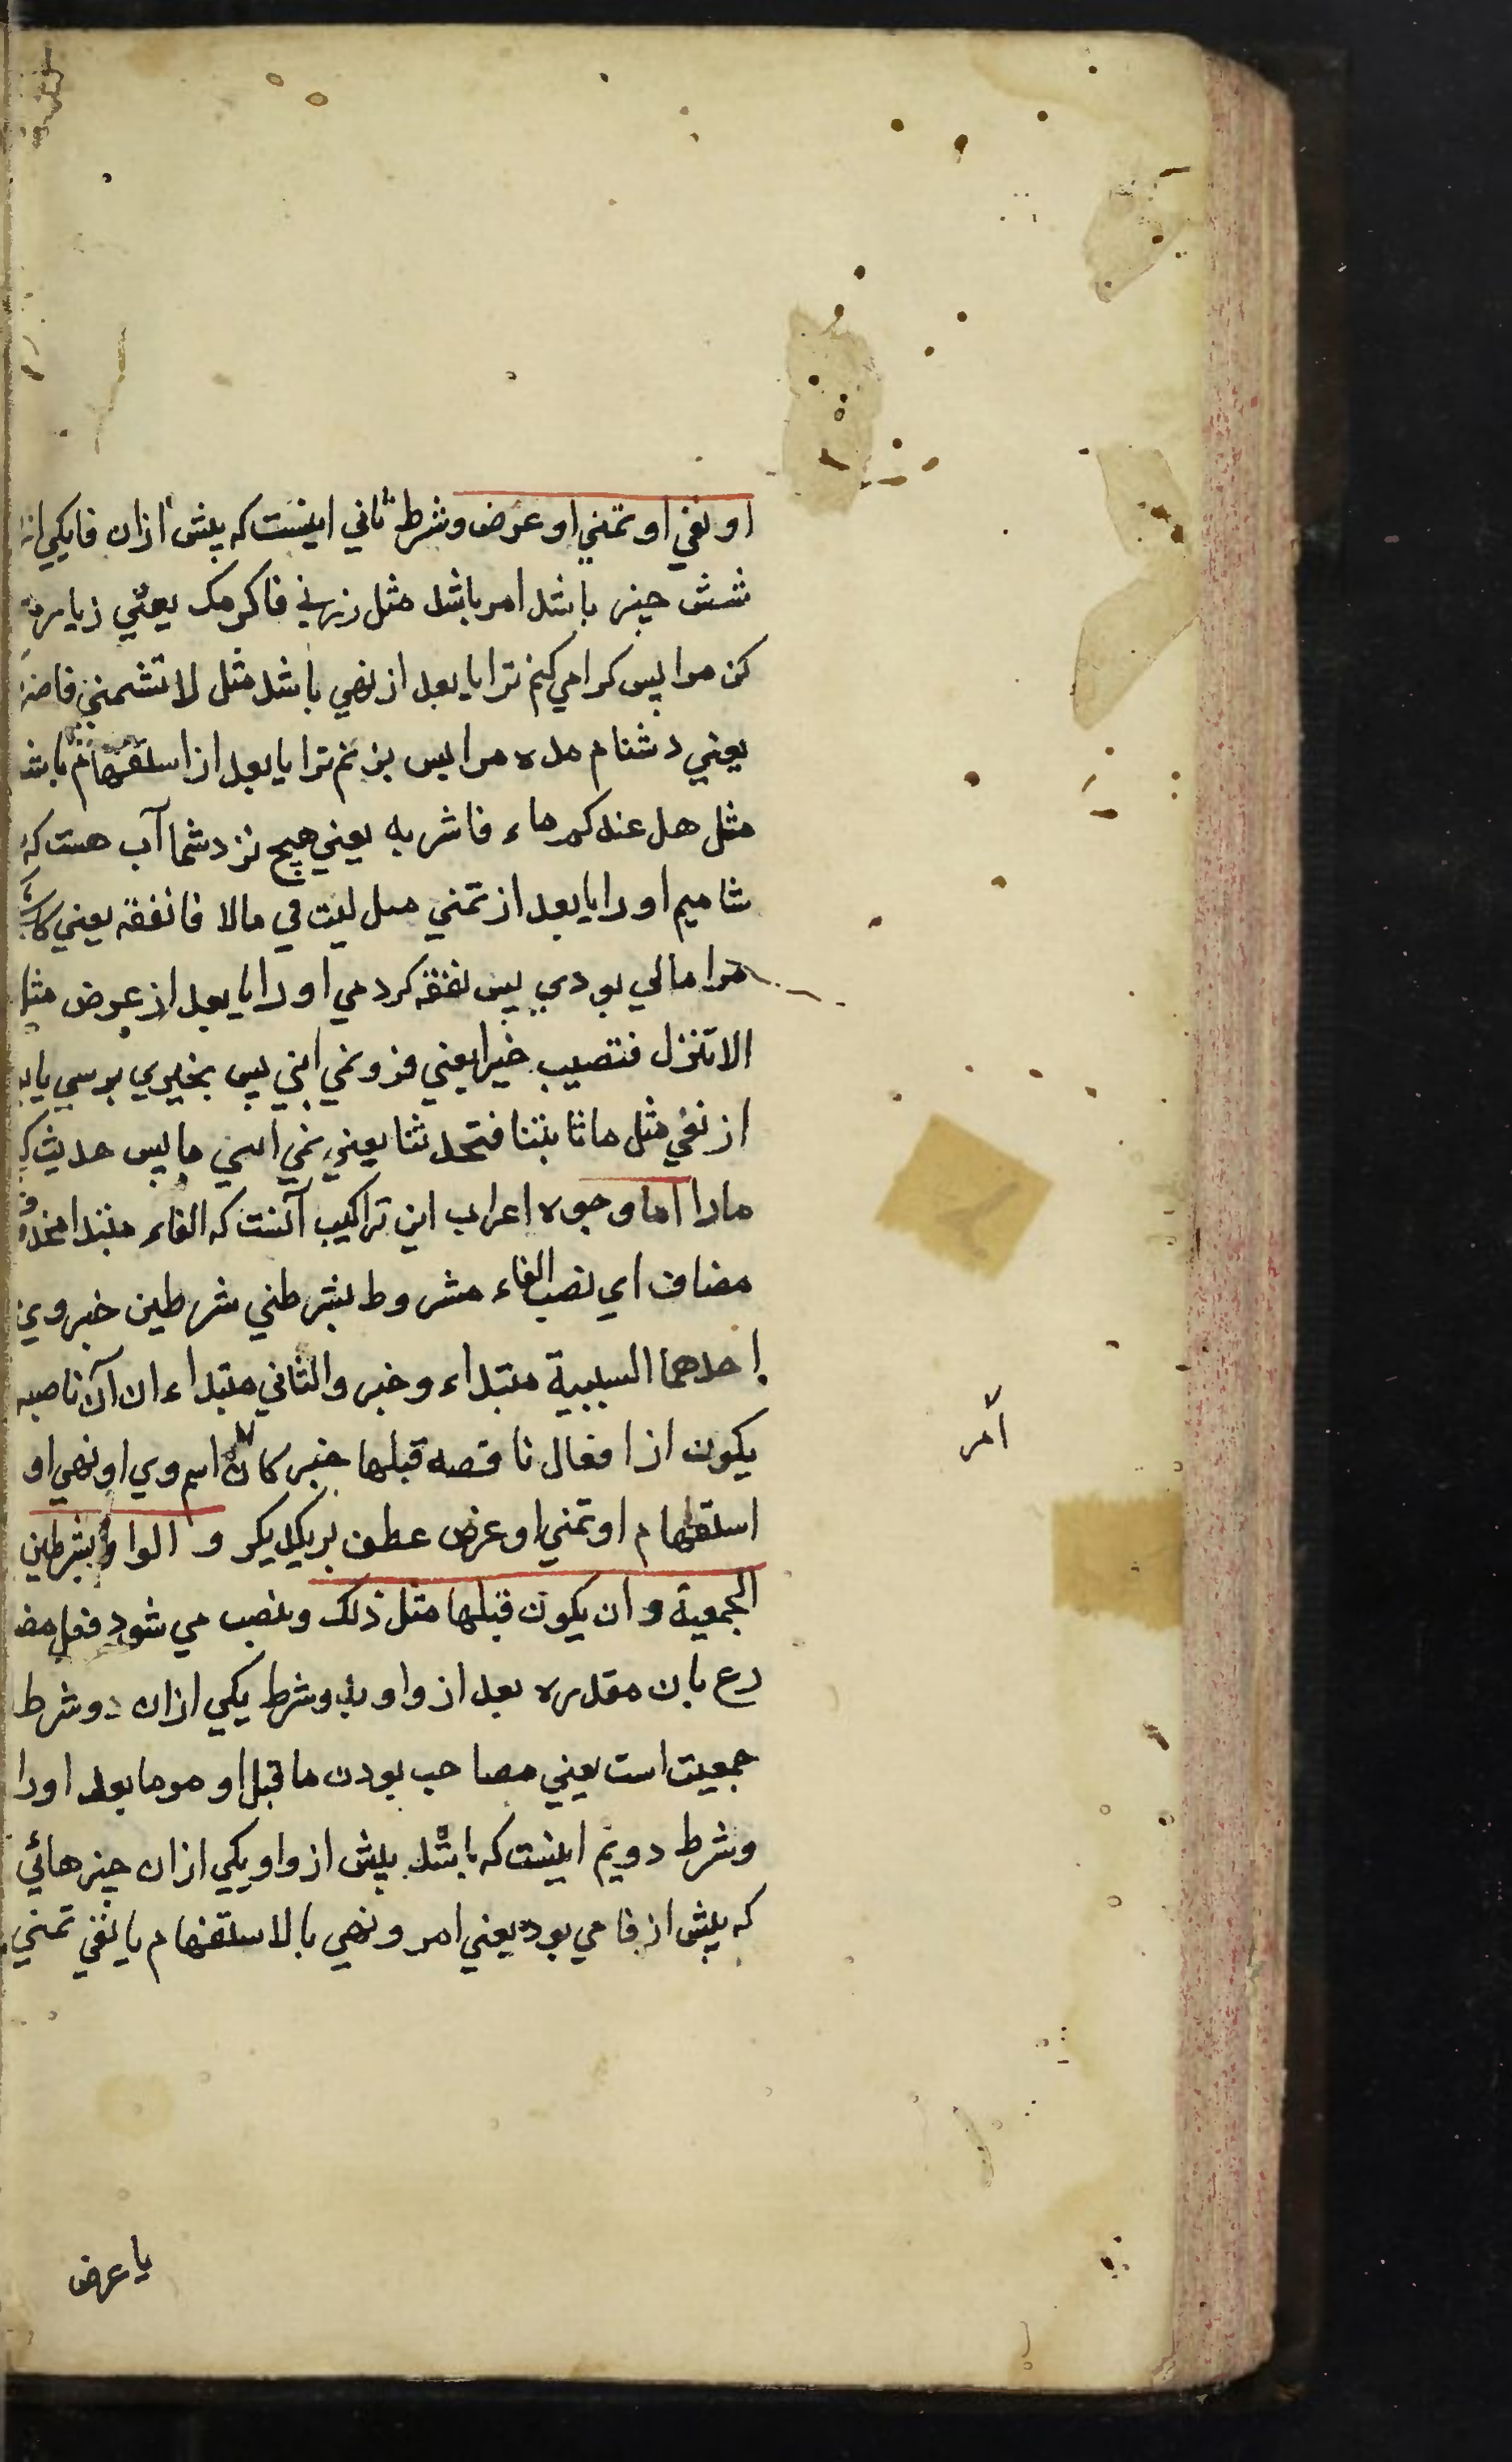 او نفي او تمني او عرض وشرط ثاني اينست كه پيش ازان فا يكي از
شش چيز باشد امر باشد مثل زرني فاكرمك يعني زيارت
كن مرا پس كرامي كنم ترا يا بعد از نهي باشد مثل لا تشتمني فاضر
يعني دشنام مده مرا پس بزنم ترا يا بعد از استفهام باشد
مثل هل عندكم ماء فاشربه يعني هيچ نزد شما آب هست كه
شاميم او را يا بعد از تمني مثل ليت لي مالا فانفقه يعني كا
مرا مالي بودي پس نفقه كردمي او را يا بعد از عرض مثل
الا تنزل فتصيب خيرا يعني فرو نمي ائي پس بخيري برسي يا بعد
از نفي مثل ما تاتينا فتحدثنا يعني نمي ائي ما پس حديث ك
مارا اما وجوه اعراب اين تراكيب آنست كه الفاء مبتدا محذوف
مضاف اي نصب الفاء مشروط بشرطني شرطين خبر وي
احدهما السببية مبتداء وخبر والثاني مبتداء ان آن ناصبه
يكون از افعال ناقصه قبلها خبر كان امر اسم وي او نهي او
استفهام او تمني او عرض عطف بر يكديكر و الواو بشرطين
الجمعية وان يكون قبلها مثل ذلك ونصب مي شود فعل مضا
رع بان مقدره بعد از واو بدو شرط يكي ازان دو شرط
جمعيت است يعني مصاحب بودن ما قبل او مر ما بعد او را
وشرط دويم اينست كه باشد پيش از واو يكي ازان چيزهائي
كه پيش از فا مي بود يعني امر ونهي يا لا استفهام يا نفي تمني
أمر
يا عرض